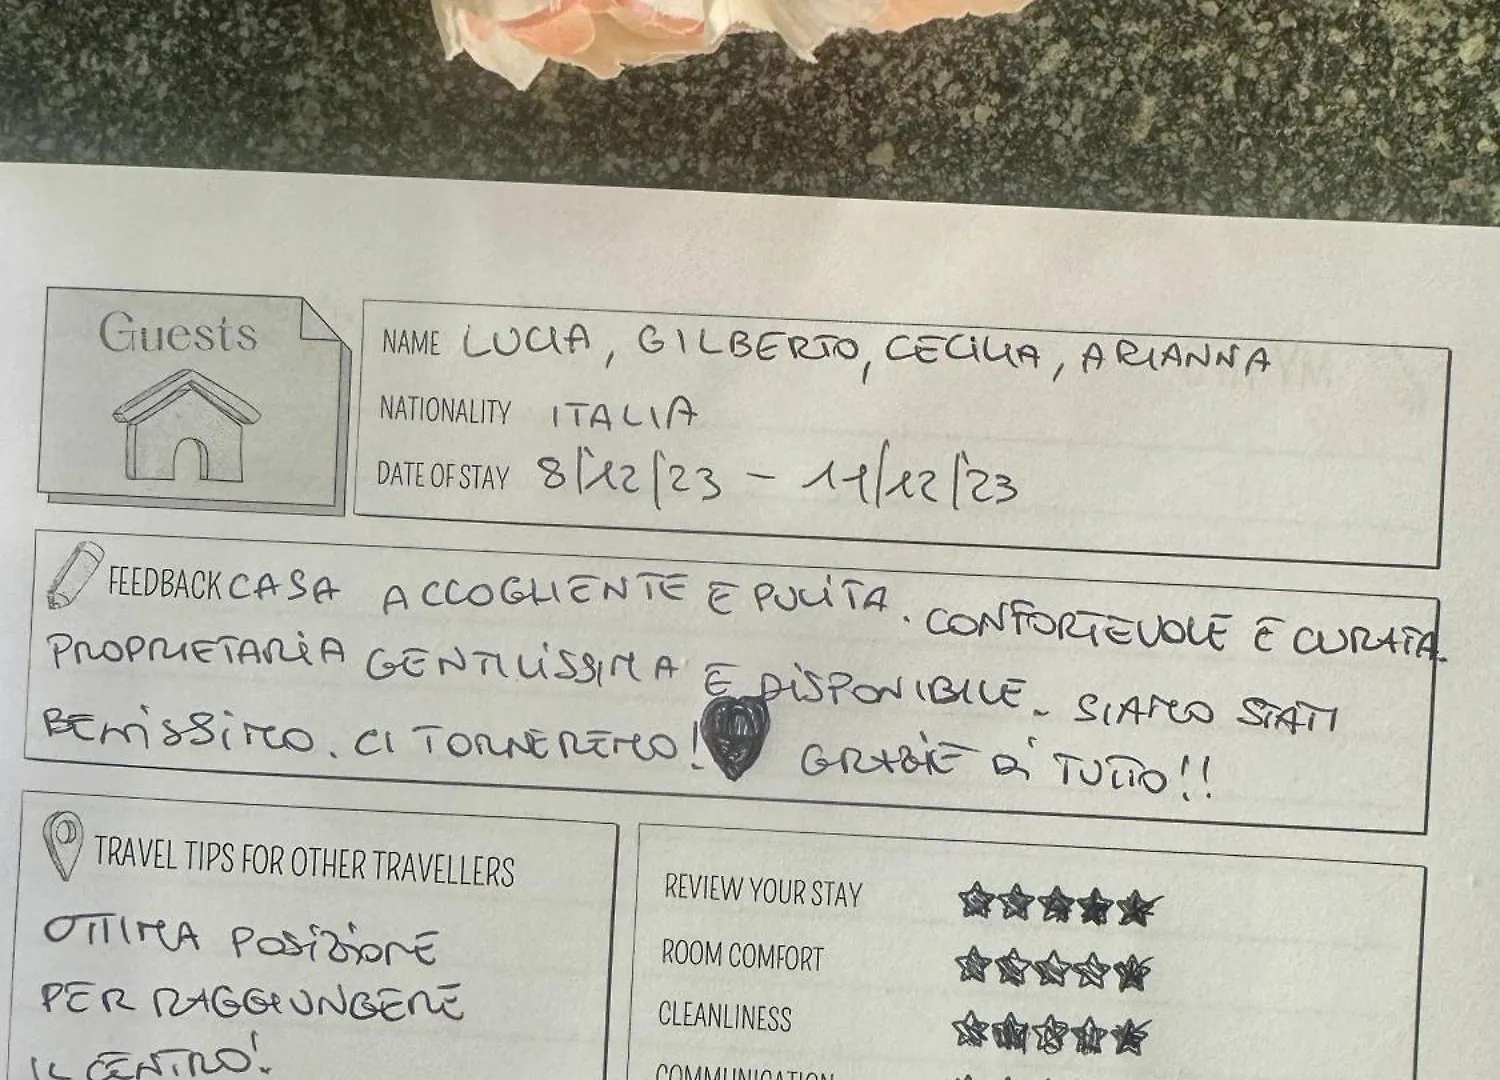 Guests
NAME LUCIA, GILBERTO, CECILIA, ARIANNA
NATIONALITY ITALIA
DATE OF STAY 8/12/23 - 11/12/23
FEEDBACK CASA ACCOGLIENTE E PULITA. CONFORTEVOLE E CURATA.
PROPRIETARIA GENTILISSIMA E DISPONIBILE. SIAMO STATI
BENISSIMO. CI TORNEREMO! GRAZIE DI TUTTO!!
TRAVEL TIPS FOR OTHER TRAVELLERS
OTTIMA POSIZIONE
PER RAGGIUNGERE
IL CENTRO!
REVIEW YOUR STAY
ROOM COMFORT
CLEANLINESS
COMMUNICATION